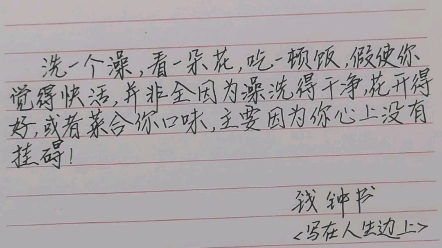 洗一个澡,看一朵花,吃一顿饭,假使你
觉得快活,并非全因为澡洗得干净,花开得
好,或者菜合你口味,主要因为你心上没有
挂碍!
钱钟书
<写在人生边上>